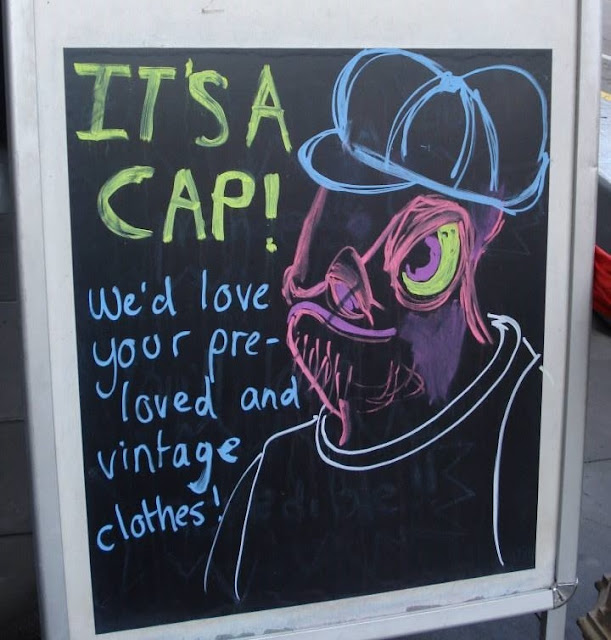 IT'S A
CAP!
We'd love
your pre-
loved and
vintage
clothes!